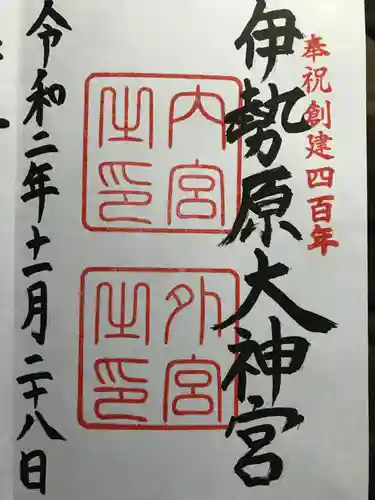 奉祝創建四百年
伊勢原大神宮
内宮之印
外宮之印
令和二年十一月二十八日